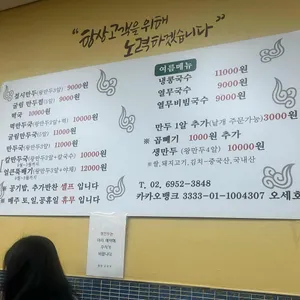 "항상 고객을 위해
노력하겠습니다"
접시만두(왕만두5알) 9000원
굴림 만두찜(9알) 9000원
떡국 9000원
떡만두국(왕만두2알+떡) 10000원
굴림만두국(9알) 11000원
만두국(왕만두4알) 11000원
칼만두국(왕만두2알+칼국수) 10000원
얼큰폭배기(왕만두3알+야채) 12000원
※ 공기밥, 추가반찬 셀프 입니다
※ 매주 토,일,공휴일 휴무 입니다
여름메뉴
냉콩국수 11000원
열무국수 9000원
열무비빔국수 9000원
만두 1알 추가(낱개 주문가능)3000원
※ 곱빼기 1000원 추가
※ 생만두 (왕만두4알) 10000원
※쌀,돼지고기,김치-중국산,국내산
T. 02, 6952-3848
카카오뱅크 3333-01-1004307 오세호